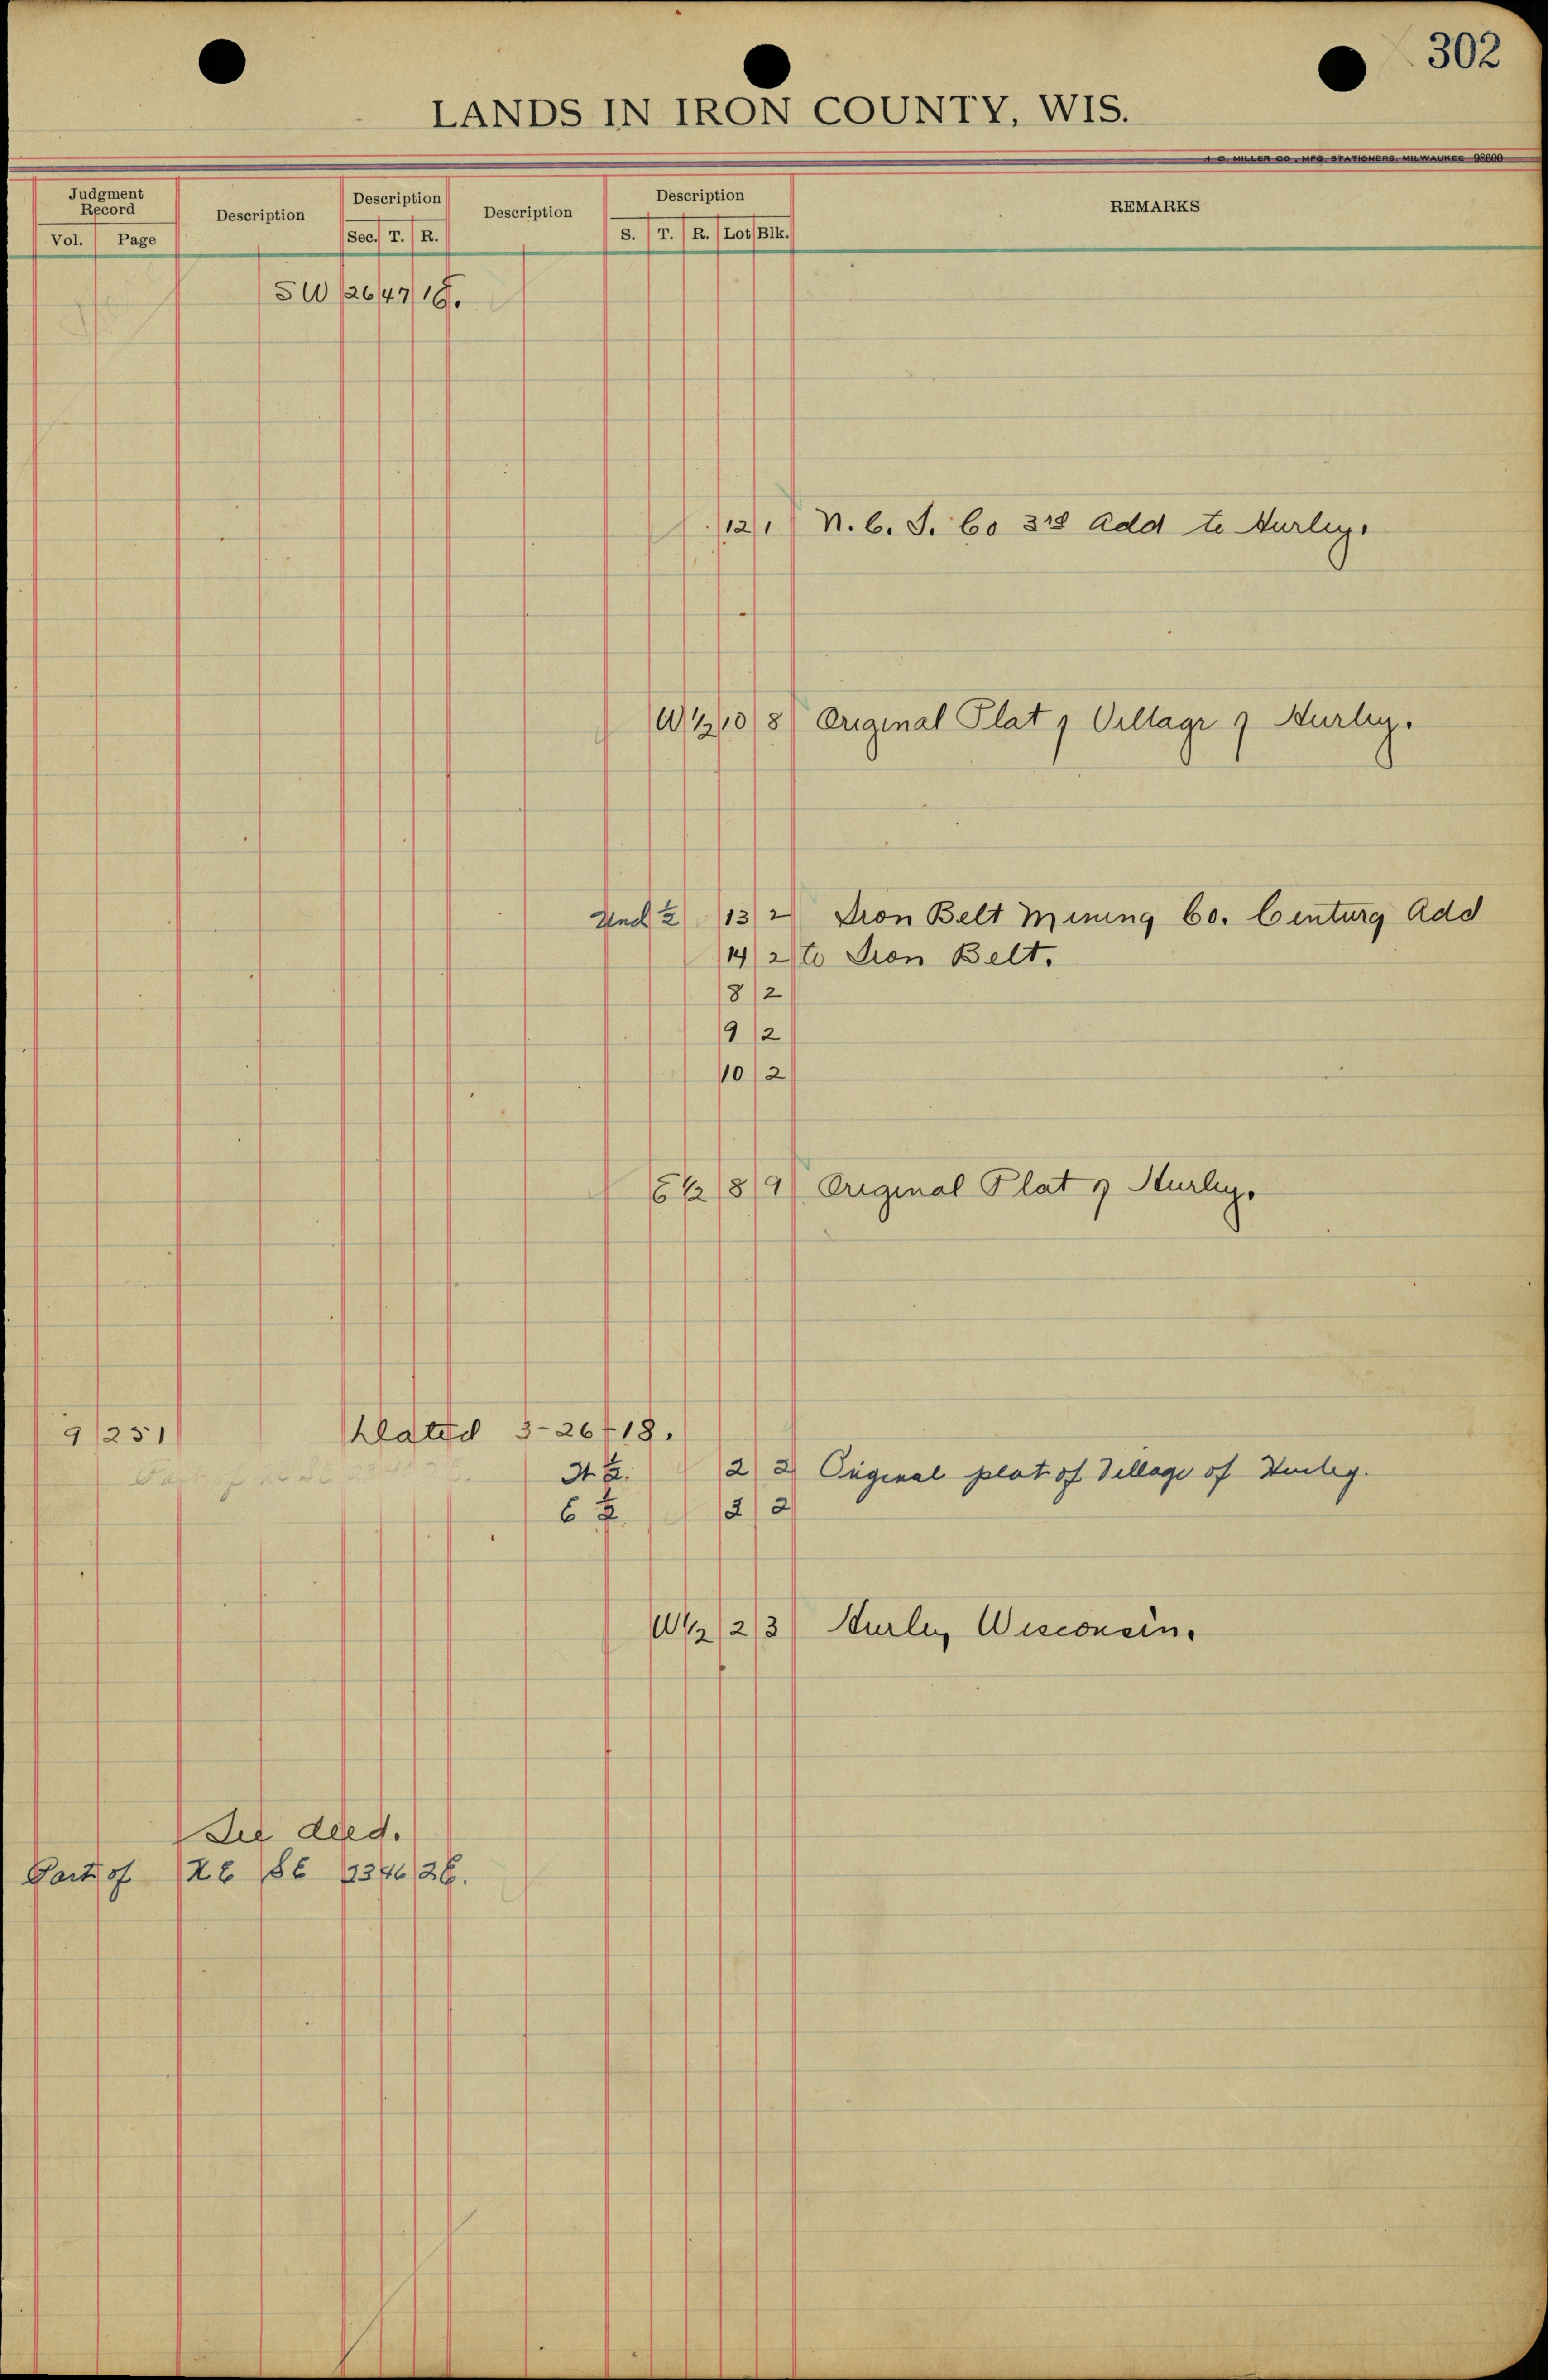 302
LANDS IN IRON COUNTY, WIS.
H. C. MILLER CO., MFG. STATIONERS, MILWAUKEE 98600
Judgment Record Description Description Description Description REMARKS
Vol. Page Sec. T. R. S. T. R. Lot Blk.
SW 26 47 1E.
12 1 N. C. I. Co 3rd Add to Hurley.
W 1/2 10 8 Original Plat of Village of Hurley.
Und 1/2 13 2 Iron Belt Mining Co. Century Add
14 2 to Iron Belt.
8 2
9 2
10 2
E 1/2 8 9 Original Plat of Hurley.
9 251 Dated 3-26-18.
N 1/2. 2 2 Original plat of Village of Hurley.
E 1/2 2 2
W 1/2 2 3 Hurley Wisconsin.
See deed.
Part of NE SE 23 46 2E.